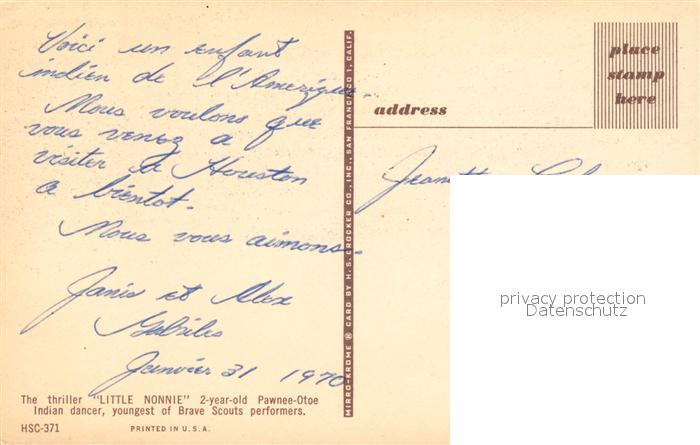 Voici un enfant
indien de l'Amerique.
Nous voulons que
vous venez a
visiter a Houston
a bientot.
Nous vous aimons.
Janis et Alex
Janvier 31 1970
The thriller "LITTLE NONNIE" 2-year-old Pawnee-Otoe
Indian dancer, youngest of Brave Scouts performers.
HSC-371
PRINTED IN U.S.A.
MIRRO-KROME ® CARD BY H. S. CROCKER CO., INC., SAN FRANCISCO 1, CALIF.
place
stamp
here
address
privacy protection
Datenschutz